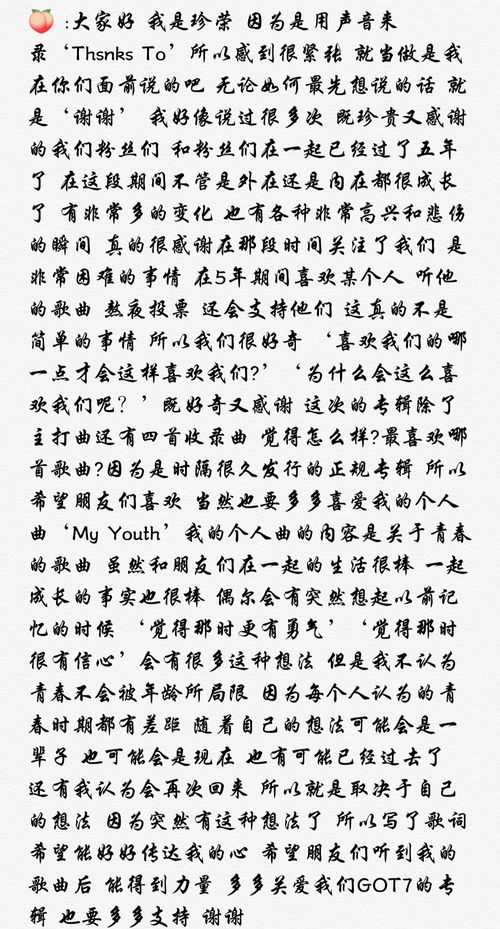 🍑 :大家好 我是珍荣 因为是用声音来
录‘Thsnks To’所以感到很紧张 就当做是我
在你们面前说的吧 无论如何最先想说的话 就
是‘谢谢’ 我好像说过很多次 既珍贵又感谢
的我们粉丝们 和粉丝们在一起已经过了五年
了 在这段期间不管是外在还是内在都很成长
了 有非常多的变化 也有各种非常高兴和悲伤
的瞬间 真的很感谢在那段时间关注了我们 是
非常困难的事情 在5年期间喜欢某个人 听他
的歌曲 熬夜投票 还会支持他们 这真的不是
简单的事情 所以我们很好奇 ‘喜欢我们的哪
一点才会这样喜欢我们?’‘为什么会这么喜
欢我们呢？’既好奇又感谢 这次的专辑除了
主打曲还有四首收录曲 觉得怎么样?最喜欢哪
首歌曲?因为是时隔很久发行的正规专辑 所以
希望朋友们喜欢 当然也要多多喜爱我的个人
曲‘My Youth’我的个人曲的内容是关于青春
的歌曲 虽然和朋友们在一起的生活很棒 一起
成长的事实也很棒 偶尔会有突然想起以前记
忆的时候 ‘觉得那时更有勇气’‘觉得那时
很有信心’会有很多这种想法 但是我不认为
青春不会被年龄所局限 因为每个人认为的青
春时期都有差距 随着自己的想法可能会是一
辈子 也可能会是现在 也有可能已经过去了
还有我认为会再次回来 所以就是取决于自己
的想法 因为突然有这种想法了 所以写了歌词
希望能好好传达我的心 希望朋友们听到我的
歌曲后 能得到力量 多多关爱我们GOT7的专
辑 也要多多支持 谢谢